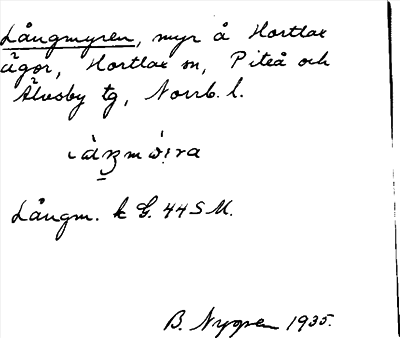 Långmyren, myr å Hortlax
ägor, Hortlax sn, Piteå och
Älvsby tg, Norrb. l.
Långm. k G. 44 S M.
B. Nygren 1935.